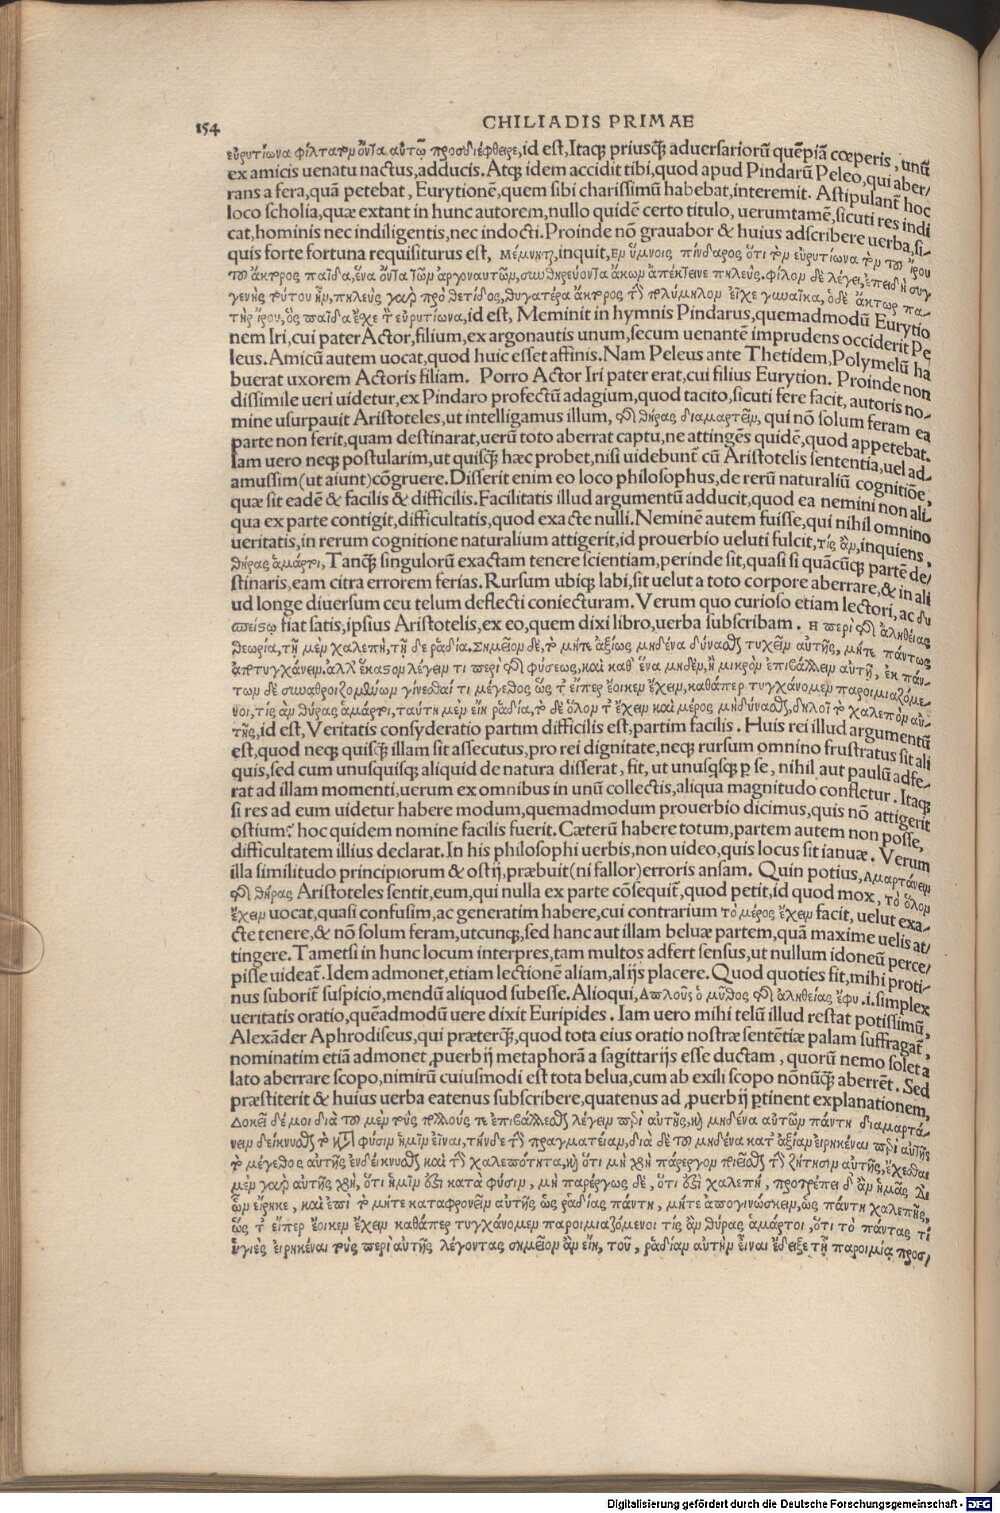 154
CHILIADIS PRIMAE
εὐρυτίωνα φίλτατον ὄντα αὐτῷ προσδιέφθειρε, id est, Itaq; priusq̃ aduersariorũ quẽpiã cœperis, unũ
ex amicis uenatu nactus, adducis. Atq; idem accidit tibi, quod apud Pindarũ Peleo, qui aber/
rans a fera, quã petebat, Eurytionẽ, quem sibi charissimũ habebat, interemit. Astipulant̃ hoc
loco scholia, quæ extant in hunc autorem, nullo quidẽ certo titulo, uerumtamẽ, sicuti res indi
cat, hominis nec indiligentis, nec indocti. Proinde nõ grauabor & huius adscribere uerba, si-
quis forte fortuna requisiturus est, Μέμνηται, inquit, Ἐν ὕμνοις πίνδαρος ὅτι τὸν εὐρυτίωνα τὸν τοῦ ἴρου
τοῦ ἄκτορος παῖδα, ἕνα ὄντα τῶν ἀργοναυτῶν, συνθηρεύοντα ἄκων ἀπέκτεινε πηλεύς. φίλον δὲ λέγει, ἐπειδὴ συγ
γενὴς τούτου ἦν, πηλεὺς γὰρ πρὸ θέτιδος, θυγατέρα ἄκτορος τὴν πολύμηλον εἶχε γυναῖκα, ὁ δὲ ἄκτωρ πα-
τὴρ ἴρου, ὃς παῖδα ἔσχε τὸν εὐρυτίωνα, id est, Meminit in hymnis Pindarus, quemadmodũ Eurytio
nem Iri, cui pater Actor, filium, ex argonautis unum, secum uenantẽ imprudens occiderit Pe
leus. Amicũ autem uocat, quod huic esset affinis. Nam Peleus ante Thetidem, Polymelũ ha
buerat uxorem Actoris filiam. Porro Actor Iri pater erat, cui filius Eurytion. Proinde non
dissimile ueri uidetur, ex Pindaro profectũ adagium, quod tacito, sicuti fere facit, autoris no-
mine usurpauit Aristoteles, ut intelligamus illum, τῆς θήρας διαμαρτεῖν, qui nõ solum feram ea
parte non ferit, quam destinarat, uerũ toto aberrat captu, ne attingẽs quidẽ, quod appetebat.
Iam uero neq; postularim, ut quisq̃ hæc probet, nisi uidebunt̃ cũ Aristotelis sententia, uel ad-
amussim (ut aiunt) cõgruere. Disserit enim eo loco philosophus, de rerũ naturaliũ cognitiõe,
quæ sit eadẽ & facilis & difficilis. Facilitatis illud argumentũ adducit, quod ea nemini non ali-
qua ex parte contigit, difficultatis, quod exacte nulli. Neminẽ autem fuisse, qui nihil omnino
ueritatis, in rerum cognitione naturalium attigerit, id prouerbio ueluti fulcit, τίς ἂν, inquiens,
θήρας ἁμάρτοι, Tanq̃ singulorũ exactam tenere scientiam, perinde sit, quasi si quãcũq; partẽ de/
stinaris, eam citra errorem ferias. Rursum ubiq; labi, sit uelut a toto corpore aberrare, & in ali
ud longe diuersum ceu telum deflecti coniecturam. Verum quo curioso etiam lectori, ac δυ
σπείστῳ fiat satis, ipsius Aristotelis, ex eo, quem dixi libro, uerba subscribam. Η περὶ τῆς ἀληθείας
θεωρία, τῇ μὲν χαλεπὴ, τῇ δὲ ῥᾳδία. Σημεῖον δὲ, τὸ μήτε ἀξίως μηδένα δύνασθαι τυχεῖν αὐτῆς, μήτε πάντως
ἀποτυγχάνειν. ἀλλ' ἕκαστον λέγειν τι περὶ τῆς φύσεως, καὶ καθ' ἕνα μηδὲν, ἢ μικρὸν ἐπιβάλλειν αὐτῇ, ἐκ πάν-
των δὲ συναθροιζομένων γίνεσθαί τι μέγεθος ὥς τ' εἴπερ ἔοικεν ἔχειν, καθάπερ τυγχάνομεν παροιμιαζόμε-
νοι, τίς ἂν θύρας ἁμάρτοι, ταύτῃ μὲν εἴη ῥᾳδία, τὸ δὲ ὅλον τ' ἔχειν καὶ μέρος μὴ δύνασθαι, δηλοῖ τὸ χαλεπὸν αὐ-
τῆς, id est, Veritatis consyderatio partim difficilis est, partim facilis. Huis rei illud argumentũ
est, quod neq; quisq̃ illam sit assecutus, pro rei dignitate, neq; rursum omnino frustratus sit ali
quis, sed cum unusquisq; aliquid de natura disserat, fit, ut unusq̃sq; ꝑ se, nihil aut paulũ adfe-
rat ad illam momenti, uerum ex omnibus in unũ collectis, aliqua magnitudo confletur. Itaq;
si res ad eum uidetur habere modum, quemadmodum prouerbio dicimus, quis nõ attigerit
ostium? hoc quidem nomine facilis fuerit. Cæterũ habere totum, partem autem non posse,
difficultatem illius declarat. In his philosophi uerbis, non uideo, quis locus sit ianuæ. Verum
illa similitudo principiorum & ostij, præbuit (ni fallor) erroris ansam. Quin potius, Αμαρτάνειν
τῆς θήρας Aristoteles sentit, eum, qui nulla ex parte cõsequit̃, quod petit, id quod mox, τὸ ὅλον
ἔχειν uocat, quasi confusim, ac generatim habere, cui contrarium τὸ μέρος ἔχειν facit, uelut exa-
cte tenere, & nõ solum feram, utcunq;, sed hanc aut illam beluæ partem, quã maxime uelis at/
tingere. Tametsi in hunc locum interpres, tam multos adfert sensus, ut nullum idoneũ perce/
pisse uideat̃. Idem admonet, etiam lectionẽ aliam, alijs placere. Quod quoties fit, mihi proti-
nus suborit̃ suspicio, mendũ aliquod subesse. Alioqui, Απλοῦς ὁ μῦθος τῆς ἀληθείας ἔφυ .i. simplex
ueritatis oratio, quẽadmodũ uere dixit Euripides. Iam uero mihi telũ illud restat potissimũ,
Alexãder Aphrodiseus, qui præterq̃, quod tota eius oratio nostræ sentẽtiæ palam suffragat̃,
nominatim etiã admonet ꝓuerbij metaphorã a sagittarijs esse ductam, quorũ nemo solet a
lato aberrare scopo, nimirũ cuiusmodi est tota belua, cum ab exili scopo nõnũq̃ aberrẽt. Sed
præstiterit & huius uerba eatenus subscribere, quatenus ad ꝓuerbij ꝑtinent explanationem,
Δοκεῖ δέ μοι διὰ τοῦ μὲν τοὺς πολλούς τε ἐπιβάλλεσθαι λέγειν περὶ αὐτῆς, καὶ μηδένα αὐτῶν πάντη διαμαρτά-
νειν δείκνυσθαι τὸ κατὰ φύσιν ἡμῖν εἶναι, τήνδε τὴν πραγματείαν, διὰ δὲ τοῦ μηδένα κατ' ἀξίαν εἰρηκέναι περὶ αὐτῆς
τὸ μέγεθος αὐτῆς ἐνδείκνυσθαι καὶ τὴν χαλεπότητα, καὶ ὅτι μὴ χρὴ πάρεργον ποιεῖσθαι τὴν ζήτησιν αὐτῆς, ἔχεσθαι
μὲν γὰρ αὐτῆς χρὴ, ὅτι ἡμῖν ἐστὶ κατὰ φύσιν, μὴ παρέργως δὲ, ὅτι ἐστὶ χαλεπὴ, προτρέπει δ' ἂν ἡμᾶς δι'
ὧν εἴρηκε, καὶ ἐπὶ τὸ μήτε καταφρονεῖν αὐτῆς ὡς ῥᾳδίας πάντη, μήτε ἀπογινώσκειν, ὡς πάντη χαλεπῆς,
ὥς τ' εἴπερ ἔοικεν ἔχειν καθάπερ τυγχάνομεν παροιμιαζόμενοι τίς ἂν θύρας ἁμάρτοι, ὅτι τὸ πάντας τι
ὑγιὲς εἰρηκέναι τοὺς περὶ αὐτῆς λέγοντας σημεῖον ἂν εἴη, τοῦ, ῥᾳδίαν αὐτὴν εἶναι ἔδειξε τῇ παροιμίᾳ προσ/
Digitalisierung gefördert durch die Deutsche Forschungsgemeinschaft - DFG